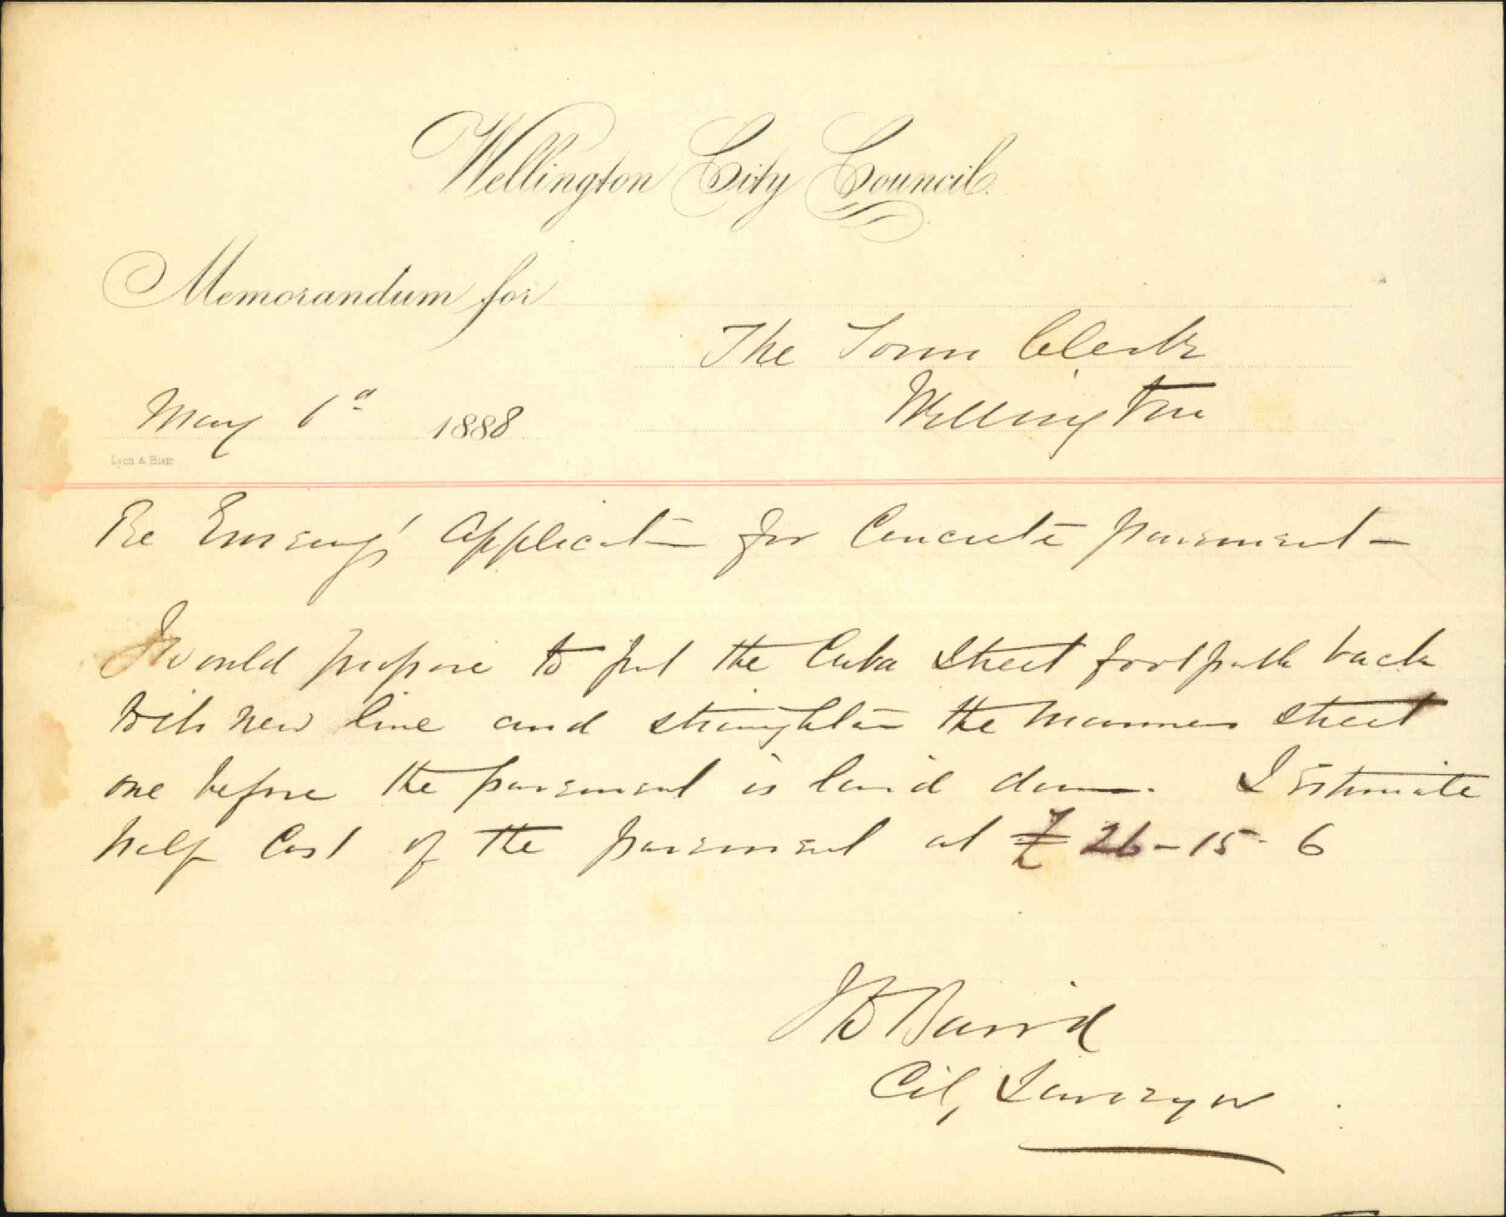 Wellington City Council.
Memorandum for
The Town Clerk
Wellington
May 6d 1888
Lyon & Blair
Re Application for Concrete pavement -
I would propose to put the Cuba Street footpath back
with new line and straighten the Manners Street
one before the pavement is laid down. I Estimate
half Cost of the pavement at £ 26-15-6
J D Baird
City Surveyor